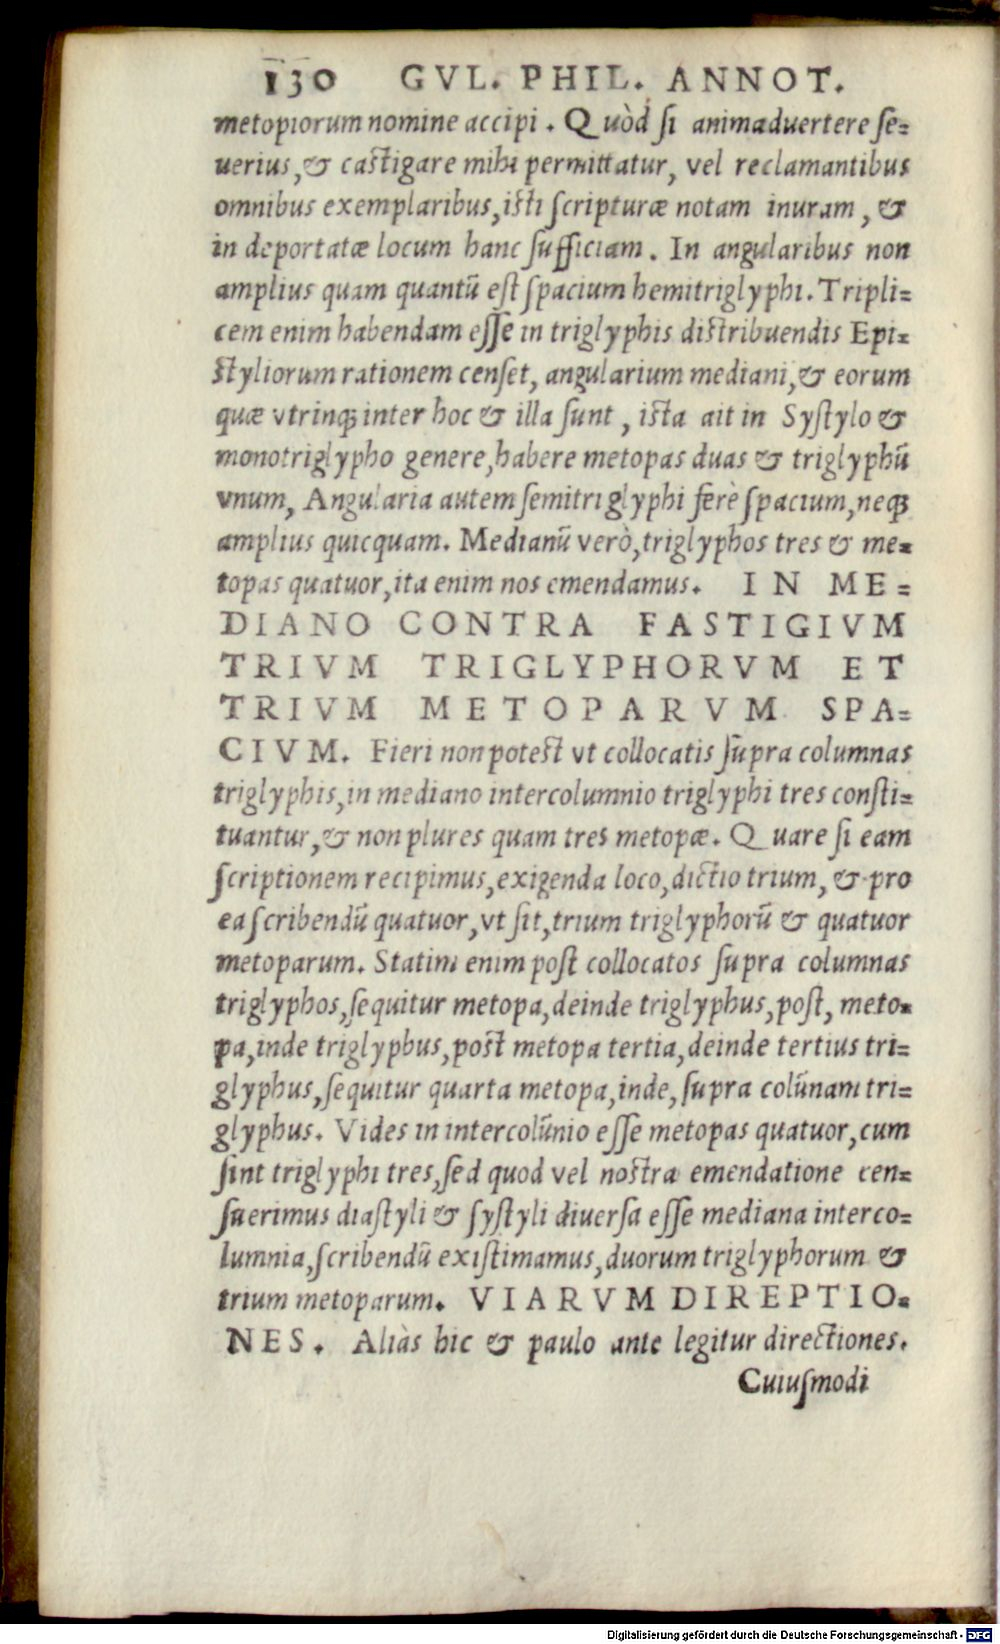 130 GVL. PHIL. ANNOT.
metopiorum nomine accipi. Quòd si animaduertere se=
uerius, & castigare mihi permittatur, vel reclamantibus
omnibus exemplaribus, isti scripturæ notam inuram, &
in deportatæ locum hanc sufficiam. In angularibus non
amplius quam quantū est spacium hemitriglyphi. Tripli=
cem enim habendam esse in triglyphis distribuendis Epi=
styliorum rationem censet, angularium mediani, & eorum
quæ vtrinq; inter hoc & illa sunt, ista ait in Systylo &
monotriglypho genere, habere metopas duas & triglyphū
vnum, Angularia autem semitriglyphi ferè spacium, neq;
amplius quicquam. Medianū verò, triglyphos tres & me=
topas quatuor, ita enim nos emendamus. IN ME=
DIANO CONTRA FASTIGIVM
TRIVM TRIGLYPHORVM ET
TRIVM METOPARVM SPA=
CIVM. Fieri non potest vt collocatis supra columnas
triglyphis, in mediano intercolumnio triglyphi tres consti=
tuantur, & non plures quam tres metopæ. Quare si eam
scriptionem recipimus, exigenda loco, dictio trium, & pro
ea scribendū quatuor, vt sit, trium triglyphorū & quatuor
metoparum. Statim enim post collocatos supra columnas
triglyphos, sequitur metopa, deinde triglyphus, post, meto=
pa, inde triglyphus, post metopa tertia, deinde tertius tri=
glyphus, sequitur quarta metopa, inde, supra colūnam tri=
glyphus. Vides in intercolūnio esse metopas quatuor, cum
sint triglyphi tres, sed quod vel nostra emendatione cen=
suerimus diastyli & systyli diuersa esse mediana interco=
lumnia, scribendū existimamus, duorum triglyphorum &
trium metoparum. VIARVM DIREPTIO=
NES. Aliàs hic & paulo ante legitur directiones.
Cuiusmodi
Digitalisierung gefördert durch die Deutsche Forschungsgemeinschaft - DFG